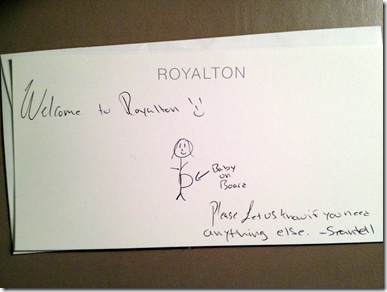 ROYALTON
Welcome to Royalton
Baby
on
Board
Please Let us know if you need
anything else.